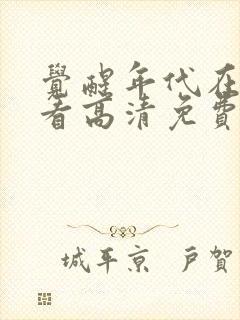 覺醒年代在
看高清免費
城平京 戸賀